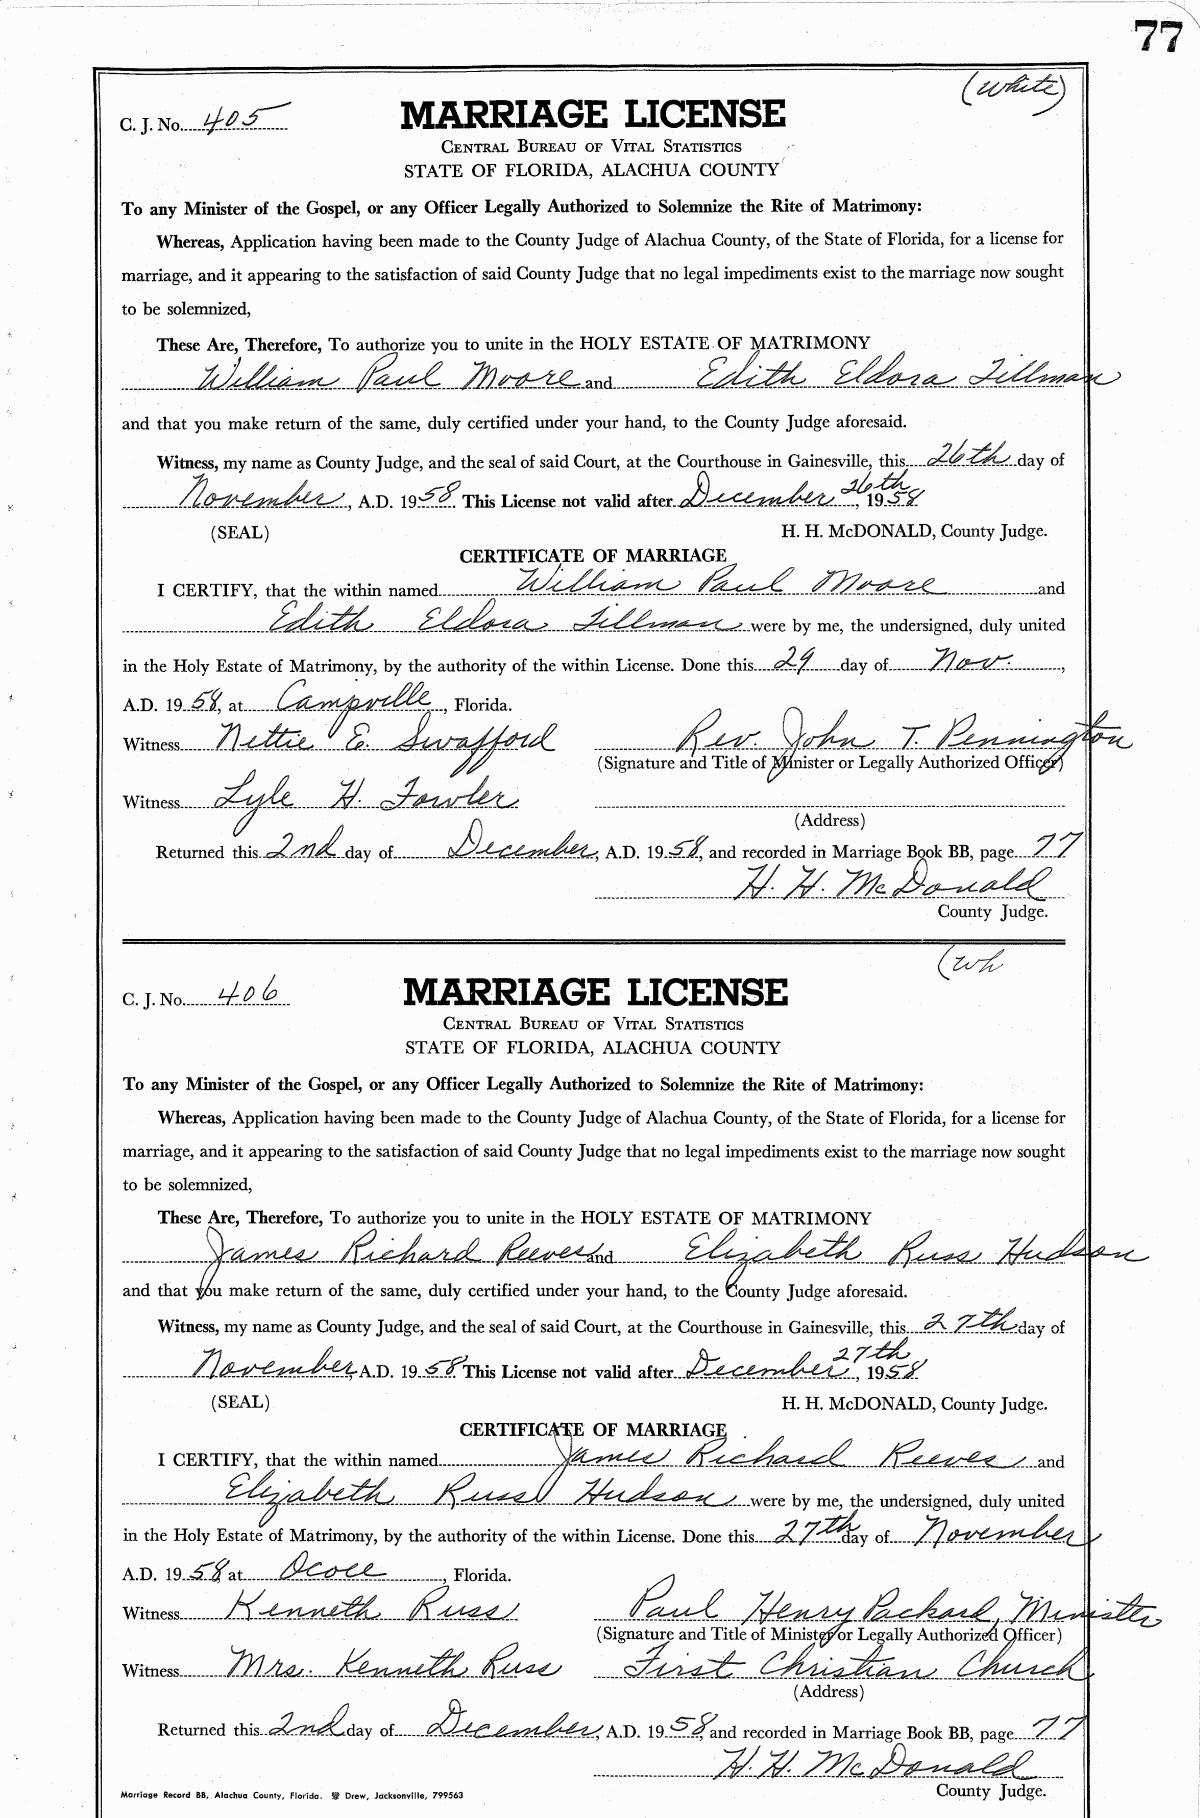 77
(white)
C. J. No. 405
MARRIAGE LICENSE
CENTRAL BUREAU OF VITAL STATISTICS
STATE OF FLORIDA, ALACHUA COUNTY
To any Minister of the Gospel, or any Officer Legally Authorized to Solemnize the Rite of Matrimony:
Whereas, Application having been made to the County Judge of Alachua County, of the State of Florida, for a license for
marriage, and it appearing to the satisfaction of said County Judge that no legal impediments exist to the marriage now sought
to be solemnized,
These Are, Therefore, To authorize you to unite in the HOLY ESTATE OF MATRIMONY
William Paul Moore and Edith Eldora Tillman
and that you make return of the same, duly certified under your hand, to the County Judge aforesaid.
Witness, my name as County Judge, and the seal of said Court, at the Courthouse in Gainesville, this 26th day of
November, A.D. 1958. This License not valid after December 26th, 1958
(SEAL) H. H. McDONALD, County Judge.
CERTIFICATE OF MARRIAGE
I CERTIFY, that the within named William Paul Moore and
Edith Eldora Tillman were by me, the undersigned, duly united
in the Holy Estate of Matrimony, by the authority of the within License. Done this 29 day of Nov.,
A.D. 1958, at Campville, Florida.
Witness Nettie E. Swafford Rev. John T. Pennington
(Signature and Title of Minister or Legally Authorized Officer)
Witness Lyle H. Fowler
(Address)
Returned this 2nd day of December, A.D. 1958, and recorded in Marriage Book BB, page 77
H. H. McDonald
County Judge.
(Wh
C. J. No. 406
MARRIAGE LICENSE
CENTRAL BUREAU OF VITAL STATISTICS
STATE OF FLORIDA, ALACHUA COUNTY
To any Minister of the Gospel, or any Officer Legally Authorized to Solemnize the Rite of Matrimony:
Whereas, Application having been made to the County Judge of Alachua County, of the State of Florida, for a license for
marriage, and it appearing to the satisfaction of said County Judge that no legal impediments exist to the marriage now sought
to be solemnized,
These Are, Therefore, To authorize you to unite in the HOLY ESTATE OF MATRIMONY
James Richard Reeves and Elizabeth Russ Hudson
and that you make return of the same, duly certified under your hand, to the County Judge aforesaid.
Witness, my name as County Judge, and the seal of said Court, at the Courthouse in Gainesville, this 27th day of
November, A.D. 1958. This License not valid after December 27th, 1958
(SEAL) H. H. McDONALD, County Judge.
CERTIFICATE OF MARRIAGE
I CERTIFY, that the within named James Richard Reeves and
Elizabeth Russ Hudson were by me, the undersigned, duly united
in the Holy Estate of Matrimony, by the authority of the within License. Done this 27th day of November
A.D. 1958, at Ocoee, Florida.
Witness Kenneth Russ Paul Henry Packard, Minister
(Signature and Title of Minister or Legally Authorized Officer)
Witness Mrs. Kenneth Russ First Christian Church
(Address)
Returned this 2nd day of December, A.D. 1958, and recorded in Marriage Book BB, page 77
H. H. McDonald
County Judge.
Marriage Record BB, Alachua County, Florida. Drew, Jacksonville, 799563